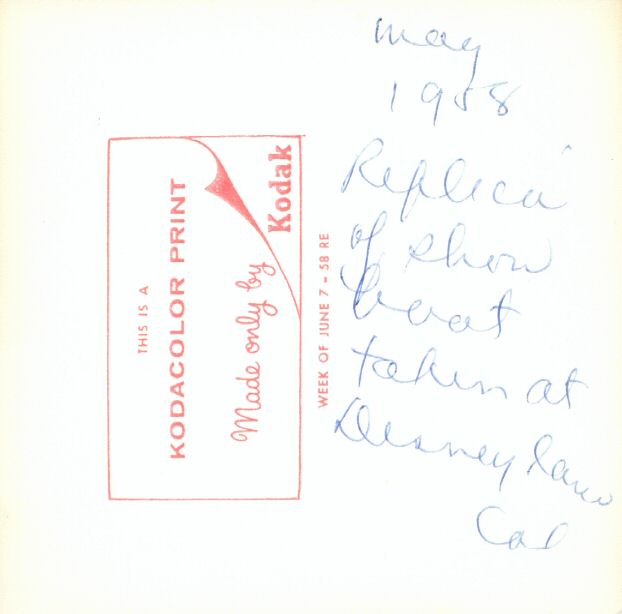 May
1958
Replica
of show
boat
taken at
Disneyland
Cal
THIS IS A
KODACOLOR PRINT
Made only by
Kodak
WEEK OF JUNE 7 - 58 RE